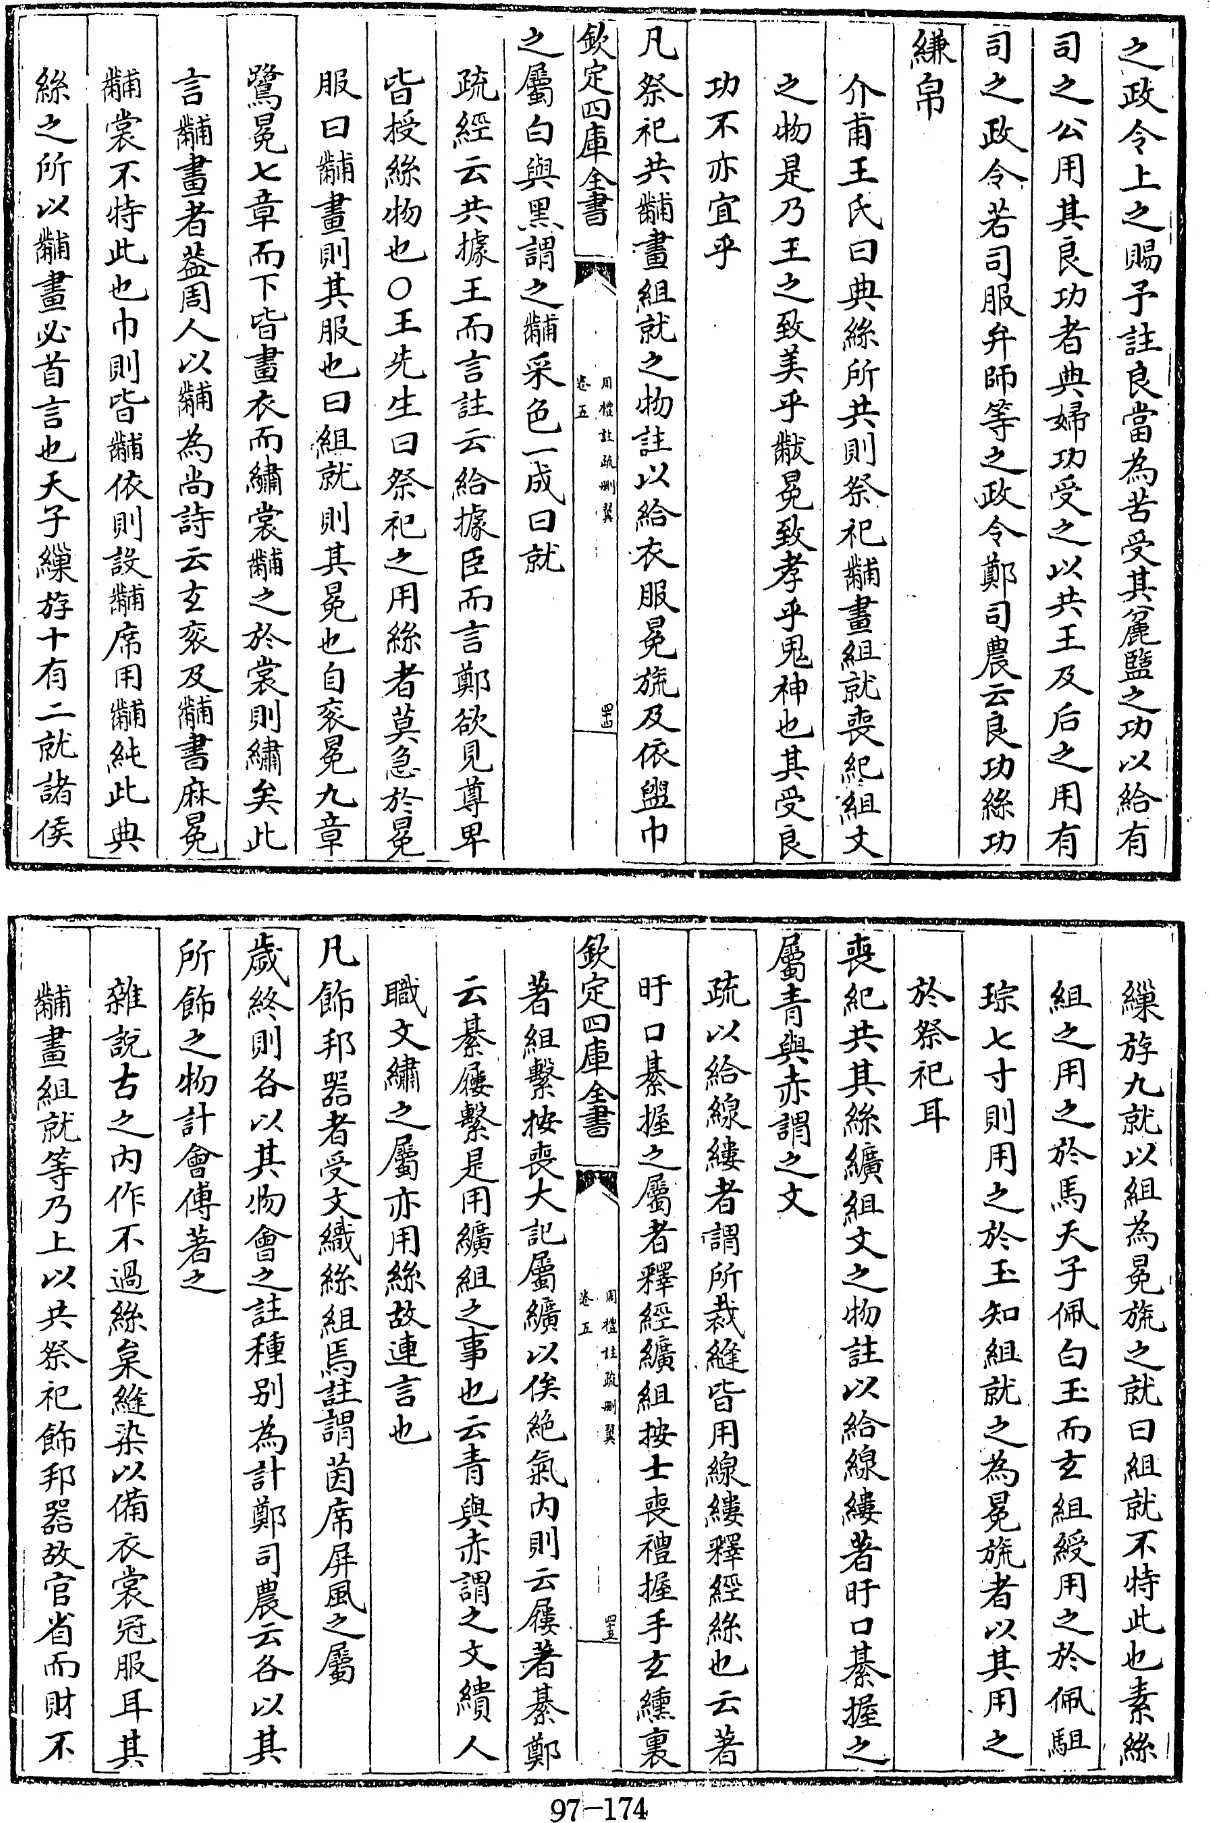 之政令上之賜予註良當為苦受其麄盬之功以給有
司之公用其良功者典婦功受之以共王及后之用有
司之政令若司服弁師等之政令鄭司農云良功絲功
縑帛
介甫王氏曰典絲所共則祭祀黼畫組就喪紀組文
之物是乃王之致美乎黻冕致孝乎鬼神也其受良
功不亦宜乎
凡祭祀共黼畫組就之物註以給衣服冕旒及依盥巾
欽定四庫全書
周禮註疏刪翼
卷五
四十四
之屬白與黑謂之黼采色一成曰就
疏經云共據王而言註云給據臣而言鄭欲見尊卑
皆授絲物也○王先生曰祭祀之用絲者莫急於冕
服曰黼畫則其服也曰組就則其冕也自衮冕九章
鷩冕七章而下皆畫衣而繡裳黼之於裳則繡矣此
言黼畫者葢周人以黼為尚詩云玄衮及黼書麻冕
黼裳不特此也巾則皆黼依則設黼席用黼純此典
絲之所以黼畫必首言也天子繅斿十有二就諸侯
繅斿九就以組為冕旒之就曰組就不特此也素絲
組之用之於馬天子佩白玉而玄組綬用之於佩駔
琮七寸則用之於玉知組就之為冕旒者以其用之
於祭祀耳
喪紀共其絲纊組文之物註以給線縷著盱口綦握之
屬青與赤謂之文
疏以給線縷者謂所裁縫皆用線縷釋經絲也云著
盱口綦握之屬者釋經纊組按士喪禮握手玄纁裏
欽定四庫全書
周禮註疏刪翼
卷五
四十五
著組繫按喪大記屬纊以俟絶氣内則云屨著綦鄭
云綦屨繫是用纊組之事也云青與赤謂之文繢人
職文繡之屬亦用絲故連言也
凡飾邦器者受文織絲組焉註謂茵席屏風之屬
歲終則各以其物會之註種别為計鄭司農云各以其
所飾之物計會傅著之
雜說古之内作不過絲枲縫染以備衣裳冠服耳其
黼畫組就等乃上以共祭祀飾邦器故官省而財不
97-174